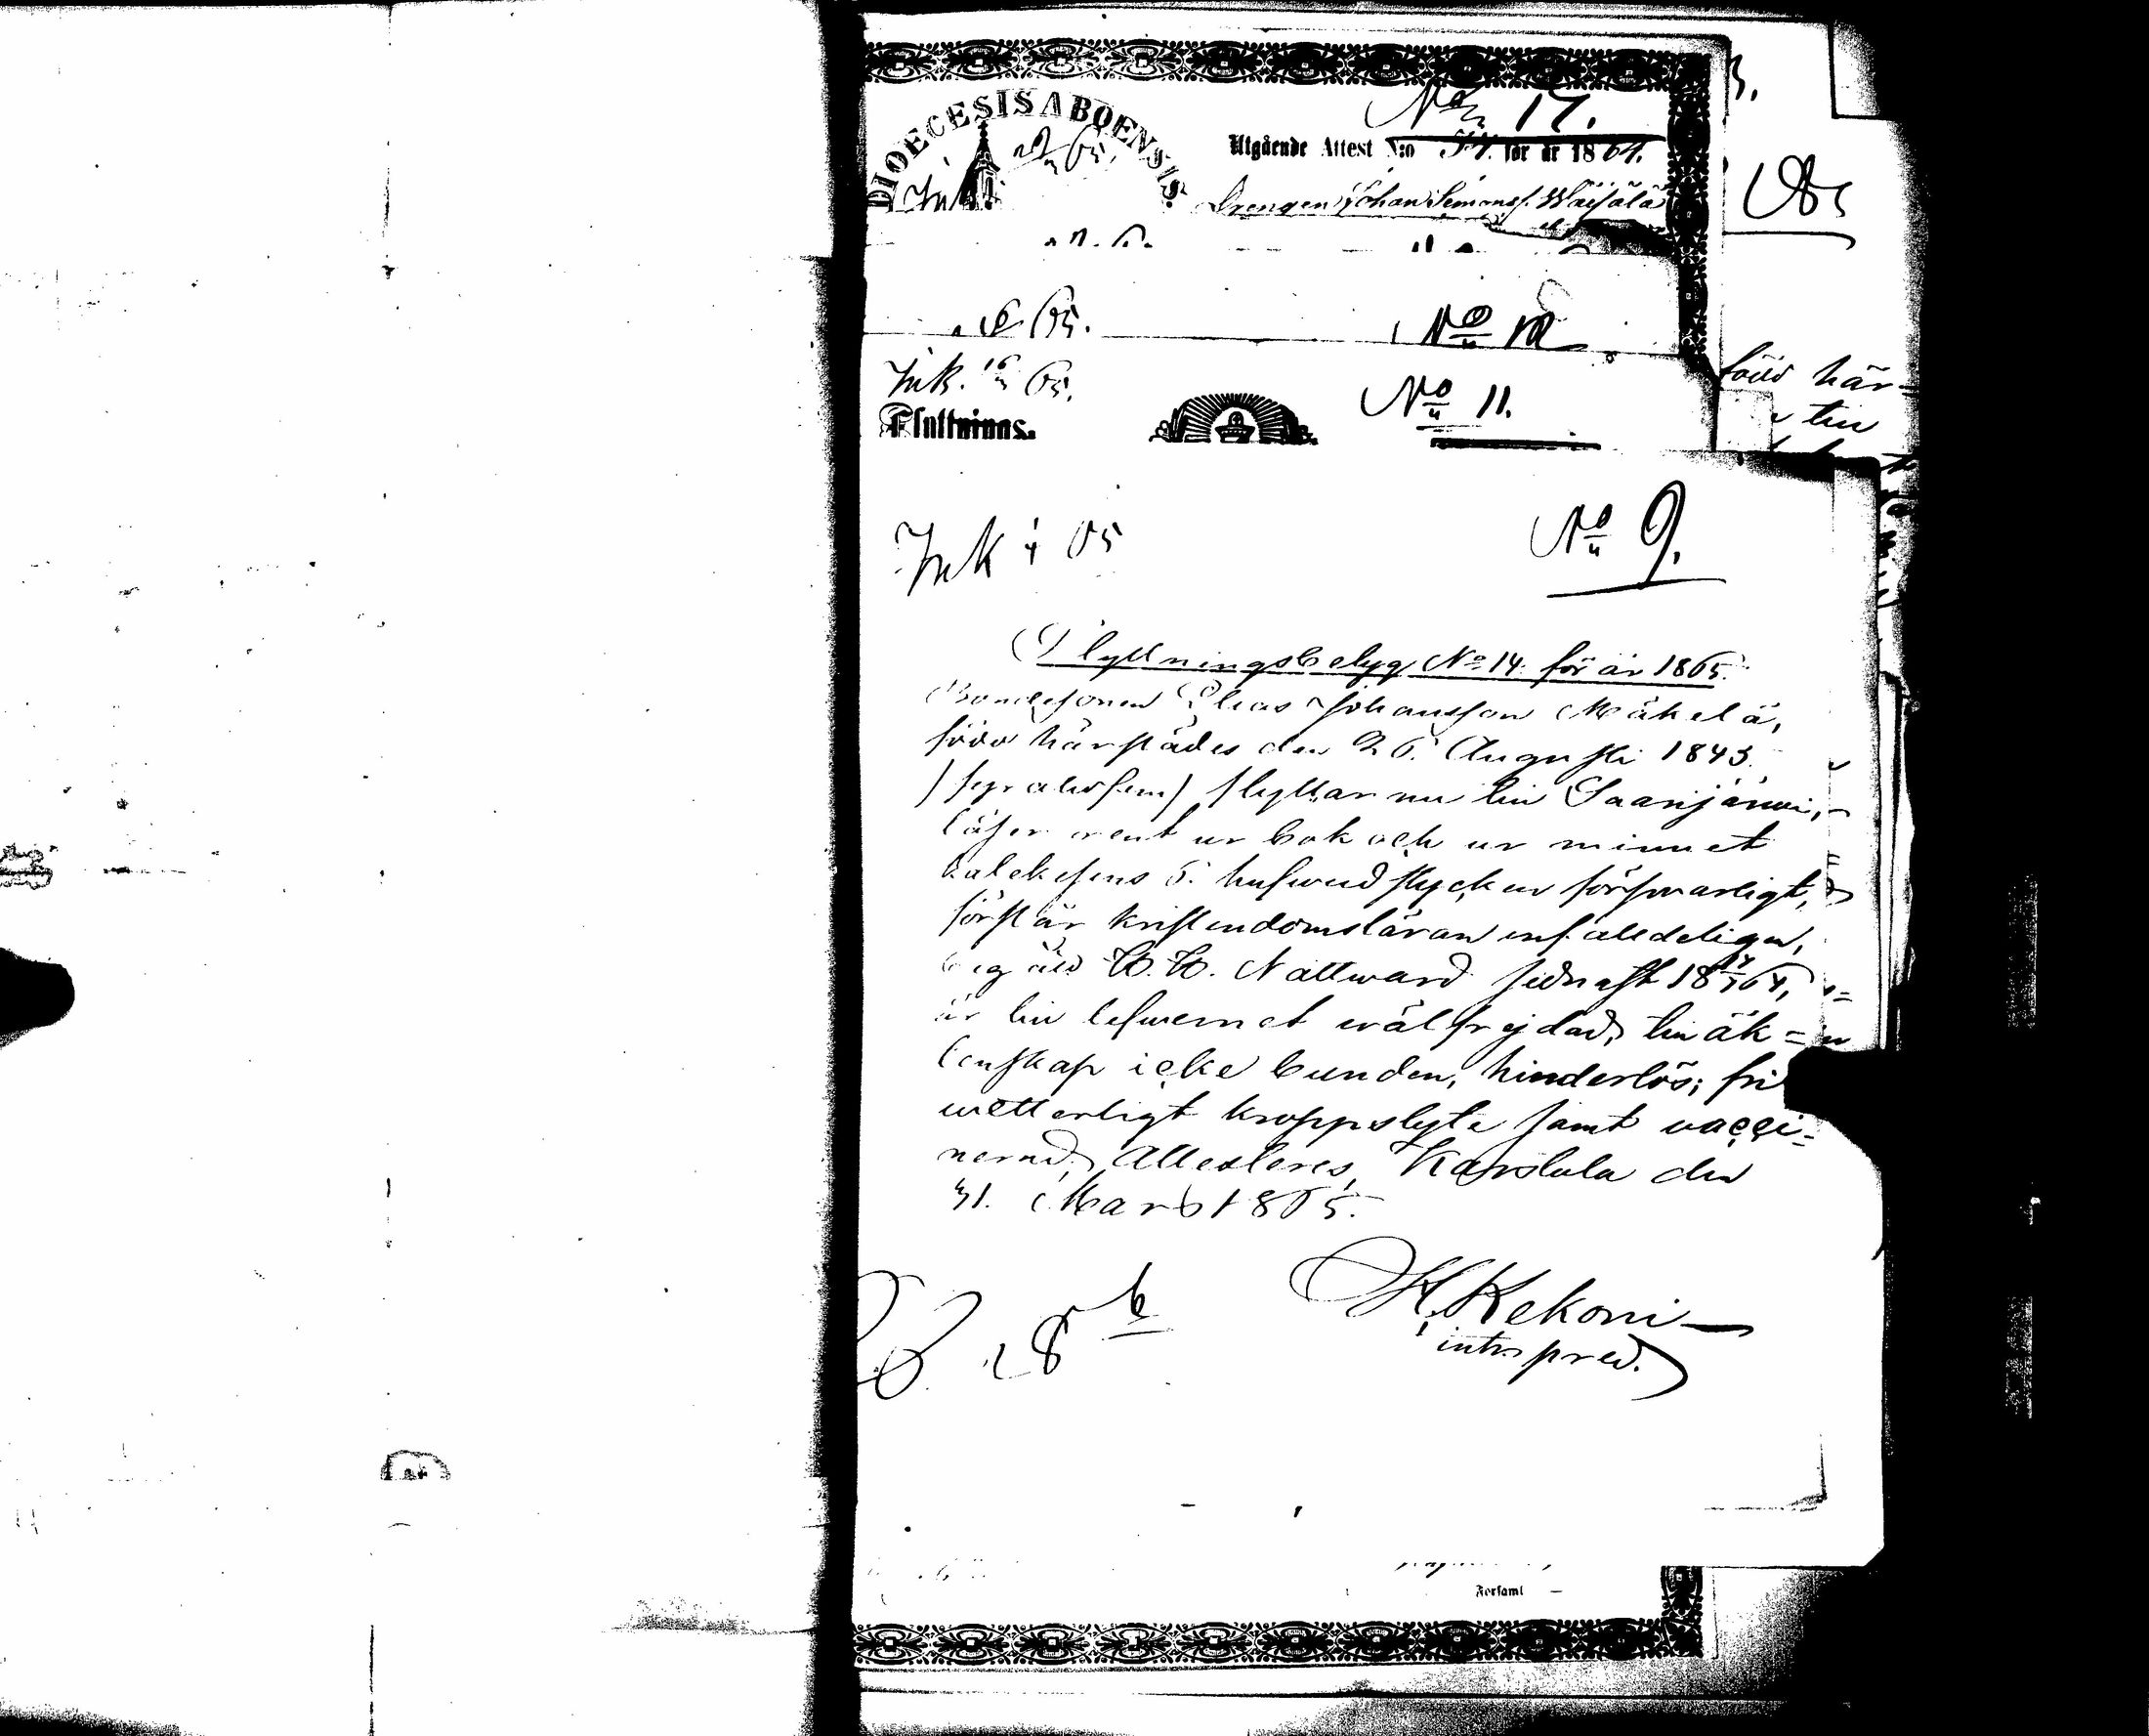 DIOECESIS ABOENSIS.
No 17.
Utgående Attest N:o 54. för år 1864.
Drengen Johan Simonss. Wäisälä
Ink.
65.
No 12
Ink. 16 65.
No 11.
Flyttnings-
född här-
till
Ink 65
No 9.
Flyttningsbetyg No 14 för år 1865.
Bondesonen Elias Johansson Mäkelä,
född härstädes den 26. Augusti 1843
/fyratiofem/ flyttar nu till Saarijärwi,
läser rent ur bok och ur minnet
katekesens 5. hufwudstycken försvarligt,
förstår kristendomsläran enfaldeligen,
begått H. H. Nattward sednast 18 64,
är till lefwernet wälfrejdad, till äk=
tenskap icke bunden, hinderlös; fri
wetterligt kroppslyte samt vacci=
nerad, Attesteras, Karstula den
31. Mars 1865.
H. Kekoni
intr. pred.
Forsaml